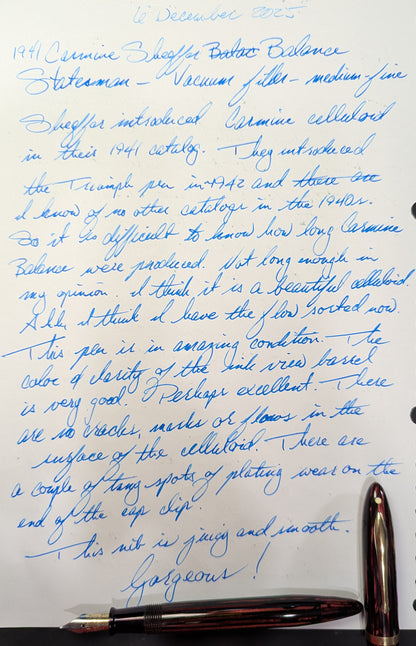 6 December 2025
1941 Carmine Sheaffer Balac Balance
Statesman – Vacuum filler – medium-fine
Sheaffer introduced Carmine celluloid
in their 1941 catalog. They introduced
the Triumph pen in 1942 and there are
I know of no other catalogs in the 1940s.
So it is difficult to know how long Carmine
Balance were produced. Not long enough in
my opinion. I think it is a beautiful celluloid.
Ahh I think I have the flow sorted now.
This pen is in amazing condition. The
color & clarity of the ink view barrel
is very good. Perhaps excellent. There
are no cracks, marks or flaws in the
surface of the celluloid. There are
a couple of tiny spots of plating wear on the
end of the cap clip.
This nib is juicy and smooth.
Gorgeous!